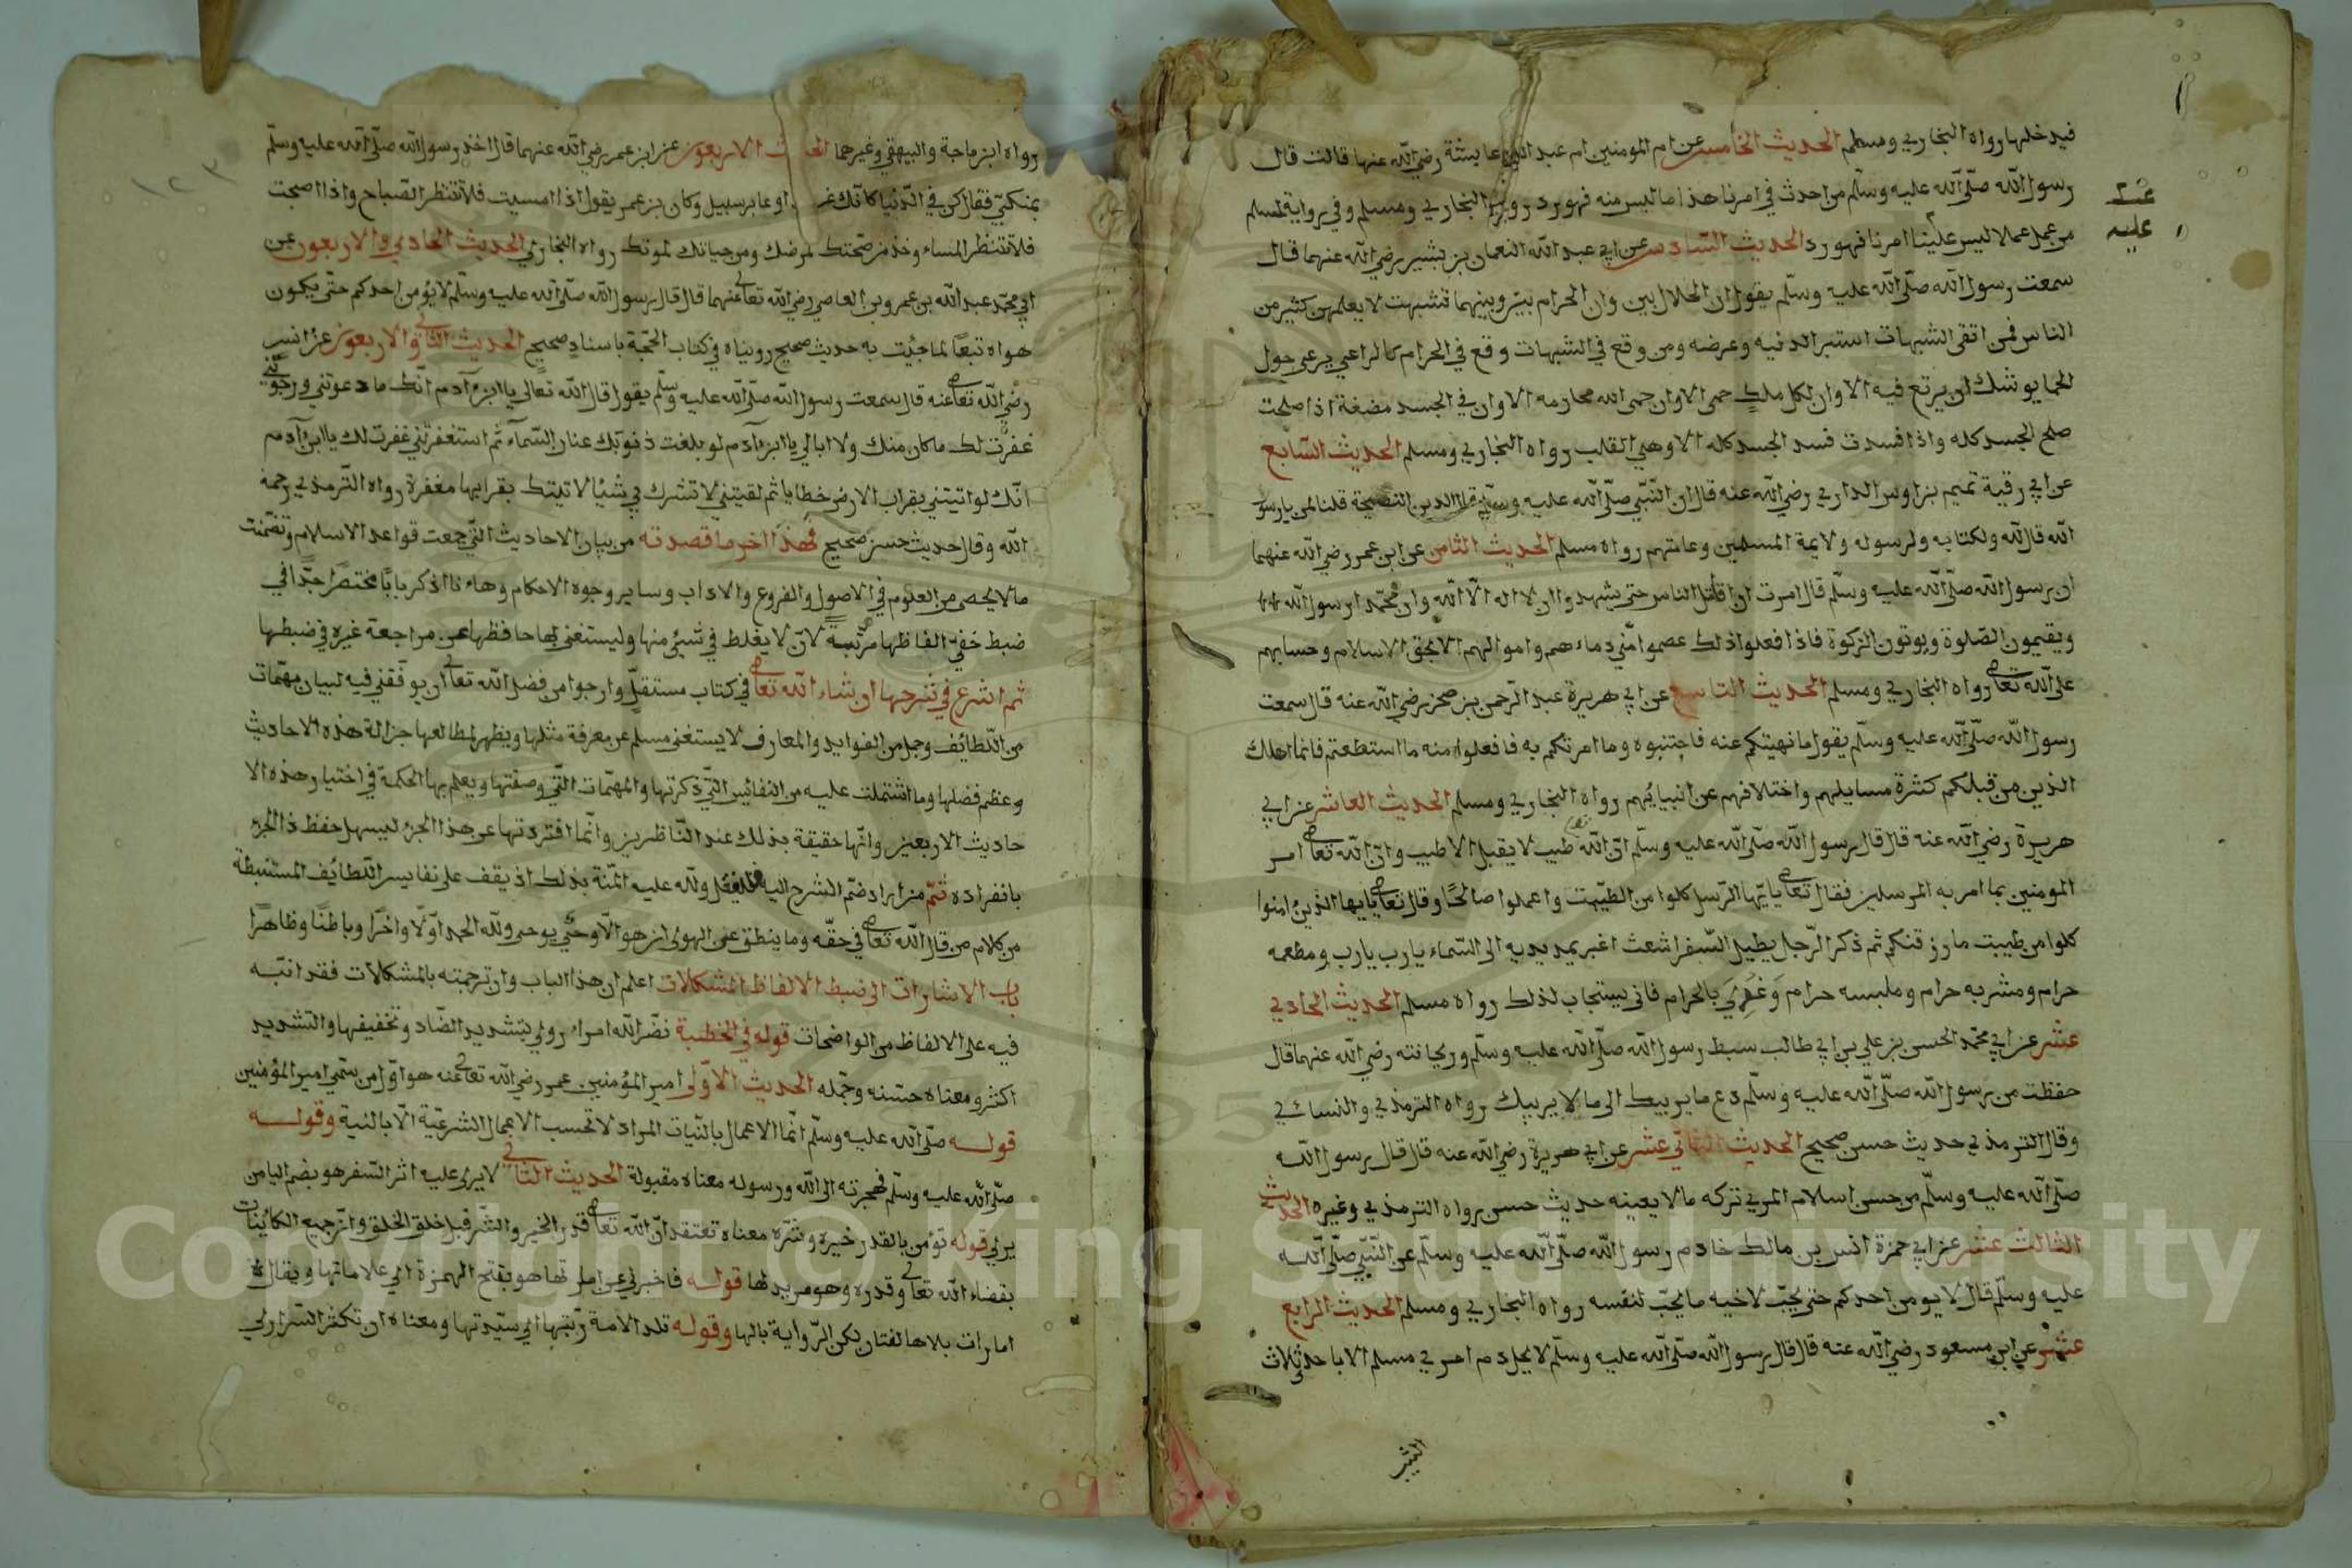 فيدخلها رواه البخاري ومسلم الحديث الخامس عن ام المومنين ام عبد الله عايشة رضي الله عنها قالت قال
رسول الله صلى الله عليه وسلم من احدث في امرنا هذا ما ليس منه فهو رد رواه البخاري ومسلم وفي رواية لمسلم
من عمل عملا ليس علينا امرنا فهو رد الحديث السادس عن ابي عبد الله النعمان بن بشير رضي الله عنهما قال
عليه
سمعت رسول الله صلى الله عليه وسلم يقول ان الحلال بين وان الحرام بين وبينهما تشبهت لا يعلمهن كثير من
الناس فمن اتقى الشبهات استبرا لدنيه وعرضه ومن وقع في الشبهات وقع في الحرام كالراعي يرعى حول
الحما يوشك ان يرتع فيه الا وان لكل ملك حمى الا وان حمى الله محارمه الا وان في الجسد مضغة اذا صلحت
صلح الجسد كله واذا فسدت فسد الجسد كله الا وهي القلب رواه البخاري ومسلم الحديث السابع
عن ابي رقية تميم بن اوس الداري رضي الله عنه قال ان النبي صلى الله عليه وسلم قال الدين النصيحة قلنا لمن يا رسو
الله قال لله ولكتابه ولرسوله ولايمة المسلمين وعامتهم رواه مسلم الحديث الثامن عن ابن عمر رضي الله عنهما
ان رسول الله صلى الله عليه وسلم قال امرت ان اقاتل الناس حتى يشهدوا ان لا اله الا الله وان محمدا رسول الله
ويقيمون الصلوة ويوتون الزكوة فاذا فعلوا ذلك عصموا مني دماءهم واموالهم الا بحق الاسلام وحسابهم
على الله تعالى رواه البخاري ومسلم الحديث التاسع عن ابي هريرة عبد الرحمن بن صخر رضي الله عنه قال سمعت
رسول الله صلى الله عليه وسلم يقول ما نهيتكم عنه فاجتنبوه وما امرتكم به فافعلوا منه ما استطعتم فانما اهلك
الذين من قبلكم كثرة مسايلهم واختلافهم عن انبيائهم رواه البخاري ومسلم الحديث العاشر عن ابي
هريرة رضي الله عنه قال قال رسول الله صلى الله عليه وسلم ان الله طيب لا يقبل الا طيب وان الله تعالى امر
المومنين بما امر به المرسلين فقال تعالى يايها الرسل كلوا من الطيبت واعملوا صالحا وقال تعالى يايها الذين امنوا
كلوا من طيبت ما رزقنكم ثم ذكر الرجل يطيل السفر اشعث اغبر يمد يديه الى السماء يا رب يا رب ومطعمه
حرام ومشربه حرام وملبسه حرام وغذي بالحرام فانى يستجاب لذلك رواه مسلم الحديث الحادي
عشر عن ابي محمد الحسن بن علي بن ابي طالب سبط رسول الله صلى الله عليه وسلم وريحانته رضي الله عنهما قال
حفظت من رسول الله صلى الله عليه وسلم دع ما يريبك الى ما لا يريبك رواه الترمذي والنسائي
وقال الترمذي حديث حسن صحيح الحديث الثاني عشر عن ابي هريرة رضي الله عنه قال قال رسول الله
صلى الله عليه وسلم من حسن اسلام المرء تركه ما لا يعينه حديث حسن رواه الترمذي وغيره الحديث
الثالث عشر عن ابي حمزة انس بن مالك خادم رسول الله صلى الله عليه وسلم عن النبي صلى الله
عليه وسلم قال لا يومن احدكم حتى يحب لاخيه ما يحب لنفسه رواه البخاري ومسلم الحديث الرابع
عشر عن ابن مسعود رضي الله عنه قال قال رسول الله صلى الله عليه وسلم لا يحل دم امرء مسلم الا باحد ثلاث
الثيب
١٢٣
رواه ابن ماجة والبيهقي وغيرهما الاربعون عن ابن عمر رضي الله عنهما قال اخذ رسول الله صلى الله عليه وسلم
بمنكبي فقال كن في الدنيا كانك او عابر سبيل وكان بن عمر يقول اذا امسيت فلا تنتظر الصباح واذا اصبحت
فلا تنتظر المساء وخذ من صحتك لمرضك ومن حياتك لموتك رواه البخاري الحديث الحادي والاربعون عن
ابي محمد عبد الله بن عمرو بن العاصي رضي الله تعالى عنهما قال قال رسول الله صلى الله عليه وسلم لا يؤمن احدكم حتى يكون
هواه تبعا لما جئت به حديث صحيح رويناه في كتاب الحجة باسناد صحيح الحديث الثاني والاربعون عن انس
رضي الله تعالى عنه قال سمعت رسول الله صلى الله عليه وسلم يقول قال الله تعالى يا ابن آدم انك ما دعوتني ورجوتني
غفرت لك ما كان منك ولا ابالي يا ابن آدم لو بلغت ذنوبك عنان السماء ثم استغفرتني غفرت لك يا ابن آدم
انك لو اتيتني بقراب الارض خطايا ثم لقيتني لا تشرك بي شيئا لاتيتك بقرابها مغفرة رواه الترمذي رحمة
الله وقال حديث حسن صحيح فهذا اخر ما قصدته من بيان الاحاديث التي جمعت قواعد الاسلام وتضمنت
ما لا يحصى من العلوم في الاصول والفروع والاداب وساير وجوه الاحكام وهاءنا اذكر بابا مختصرا جدا في
ضبط خفي الفاظها مرتبة لان لا يغلط في شيئ منها وليستغنى بها حافظها عن مراجعة غيره في ضبطها
ثم اشرع في شرحها ان شاء الله تعالى في كتاب مستقل وارجوا من فضل الله تعالى ان يوفقني فيه لبيان مهمات
من اللطائف وجمل من الفوايد والمعارف لا يستغنى مسلم عن معرفة مثلها ويظهر لمطالعها جزالة هذه الاحاديث
وعظم فضلها وما اشتملت عليه من النفائس التي ذكرتها والمهمات التي وصفتها ويعلم بها الحكمة في اختيار هذه الا
حاديث الاربعين وانها حقيقة بذلك عند الناظرين وانما افردتها عن هذا الجزء ليسهل حفظ ذا الجزء
بانفراده ثم من اراد ضم الشرح اليه فليفعل ولله عليه المنة بذلك اذ يقف على نفايس اللطائف المستنبطة
من كلام من قال الله تعالى في حقه وما ينطق عن الهوى ان هو الا وحي يوحى ولله الحمد اولا واخرا وباطنا وظاهرا
باب الاشارات الى ضبط الالفاظ المشكلات اعلم ان هذا الباب وان ترجمته بالمشكلات فقد انبه
فيه على الالفاظ من الواضحات قوله في الخطبة نضر الله امراء روي بتشديد الضاد وتخفيفها والتشديد
اكثر ومعناه حسنه وجمله الحديث الاول امير المؤمنين عمر رضي الله تعالى عنه هو اول من سمي امير المؤمنين
قوله صلى الله عليه وسلم انما الاعمال بالنيات المراد لا تحسب الاعمال الشرعية الا بالنية وقوله
صلى الله عليه وسلم فهجرته الى الله ورسوله معناه مقبولة الحديث الثاني لا يرى عليه اثر السفر هو بضم اليا من
يرى قوله تؤمن بالقدر خيره وشره معناه تعتقد ان الله تعالى قدر الخير والشر قبل خلق الخلق وان جميع الكائنات
بقضاء الله تعالى وقدره وهو مريد لها قوله فاخبرني عن اماراتها هو بفتح الهمزة اي علاماتها ويقال
امارات بلاها لغتان لكن الرواية بالها وقوله تلد الامة ربتها اي سيدتها ومعناه ان تكثر السراري
Copyright © King Saud University